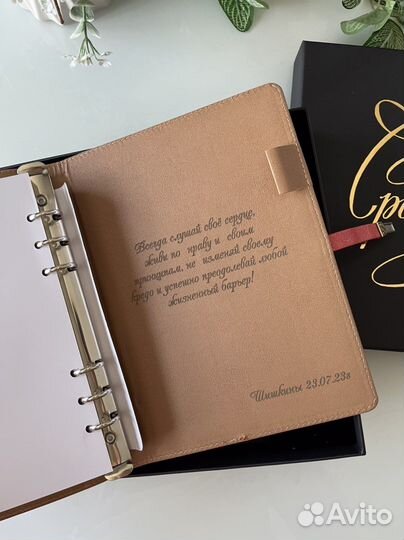 Всегда слушай своё сердце,
живи по нраву и своим
принципам, не изменяй своему
кредо и успешно преодолевай любой
жизненный барьер!
Шишкины 23.07.23г
Avito